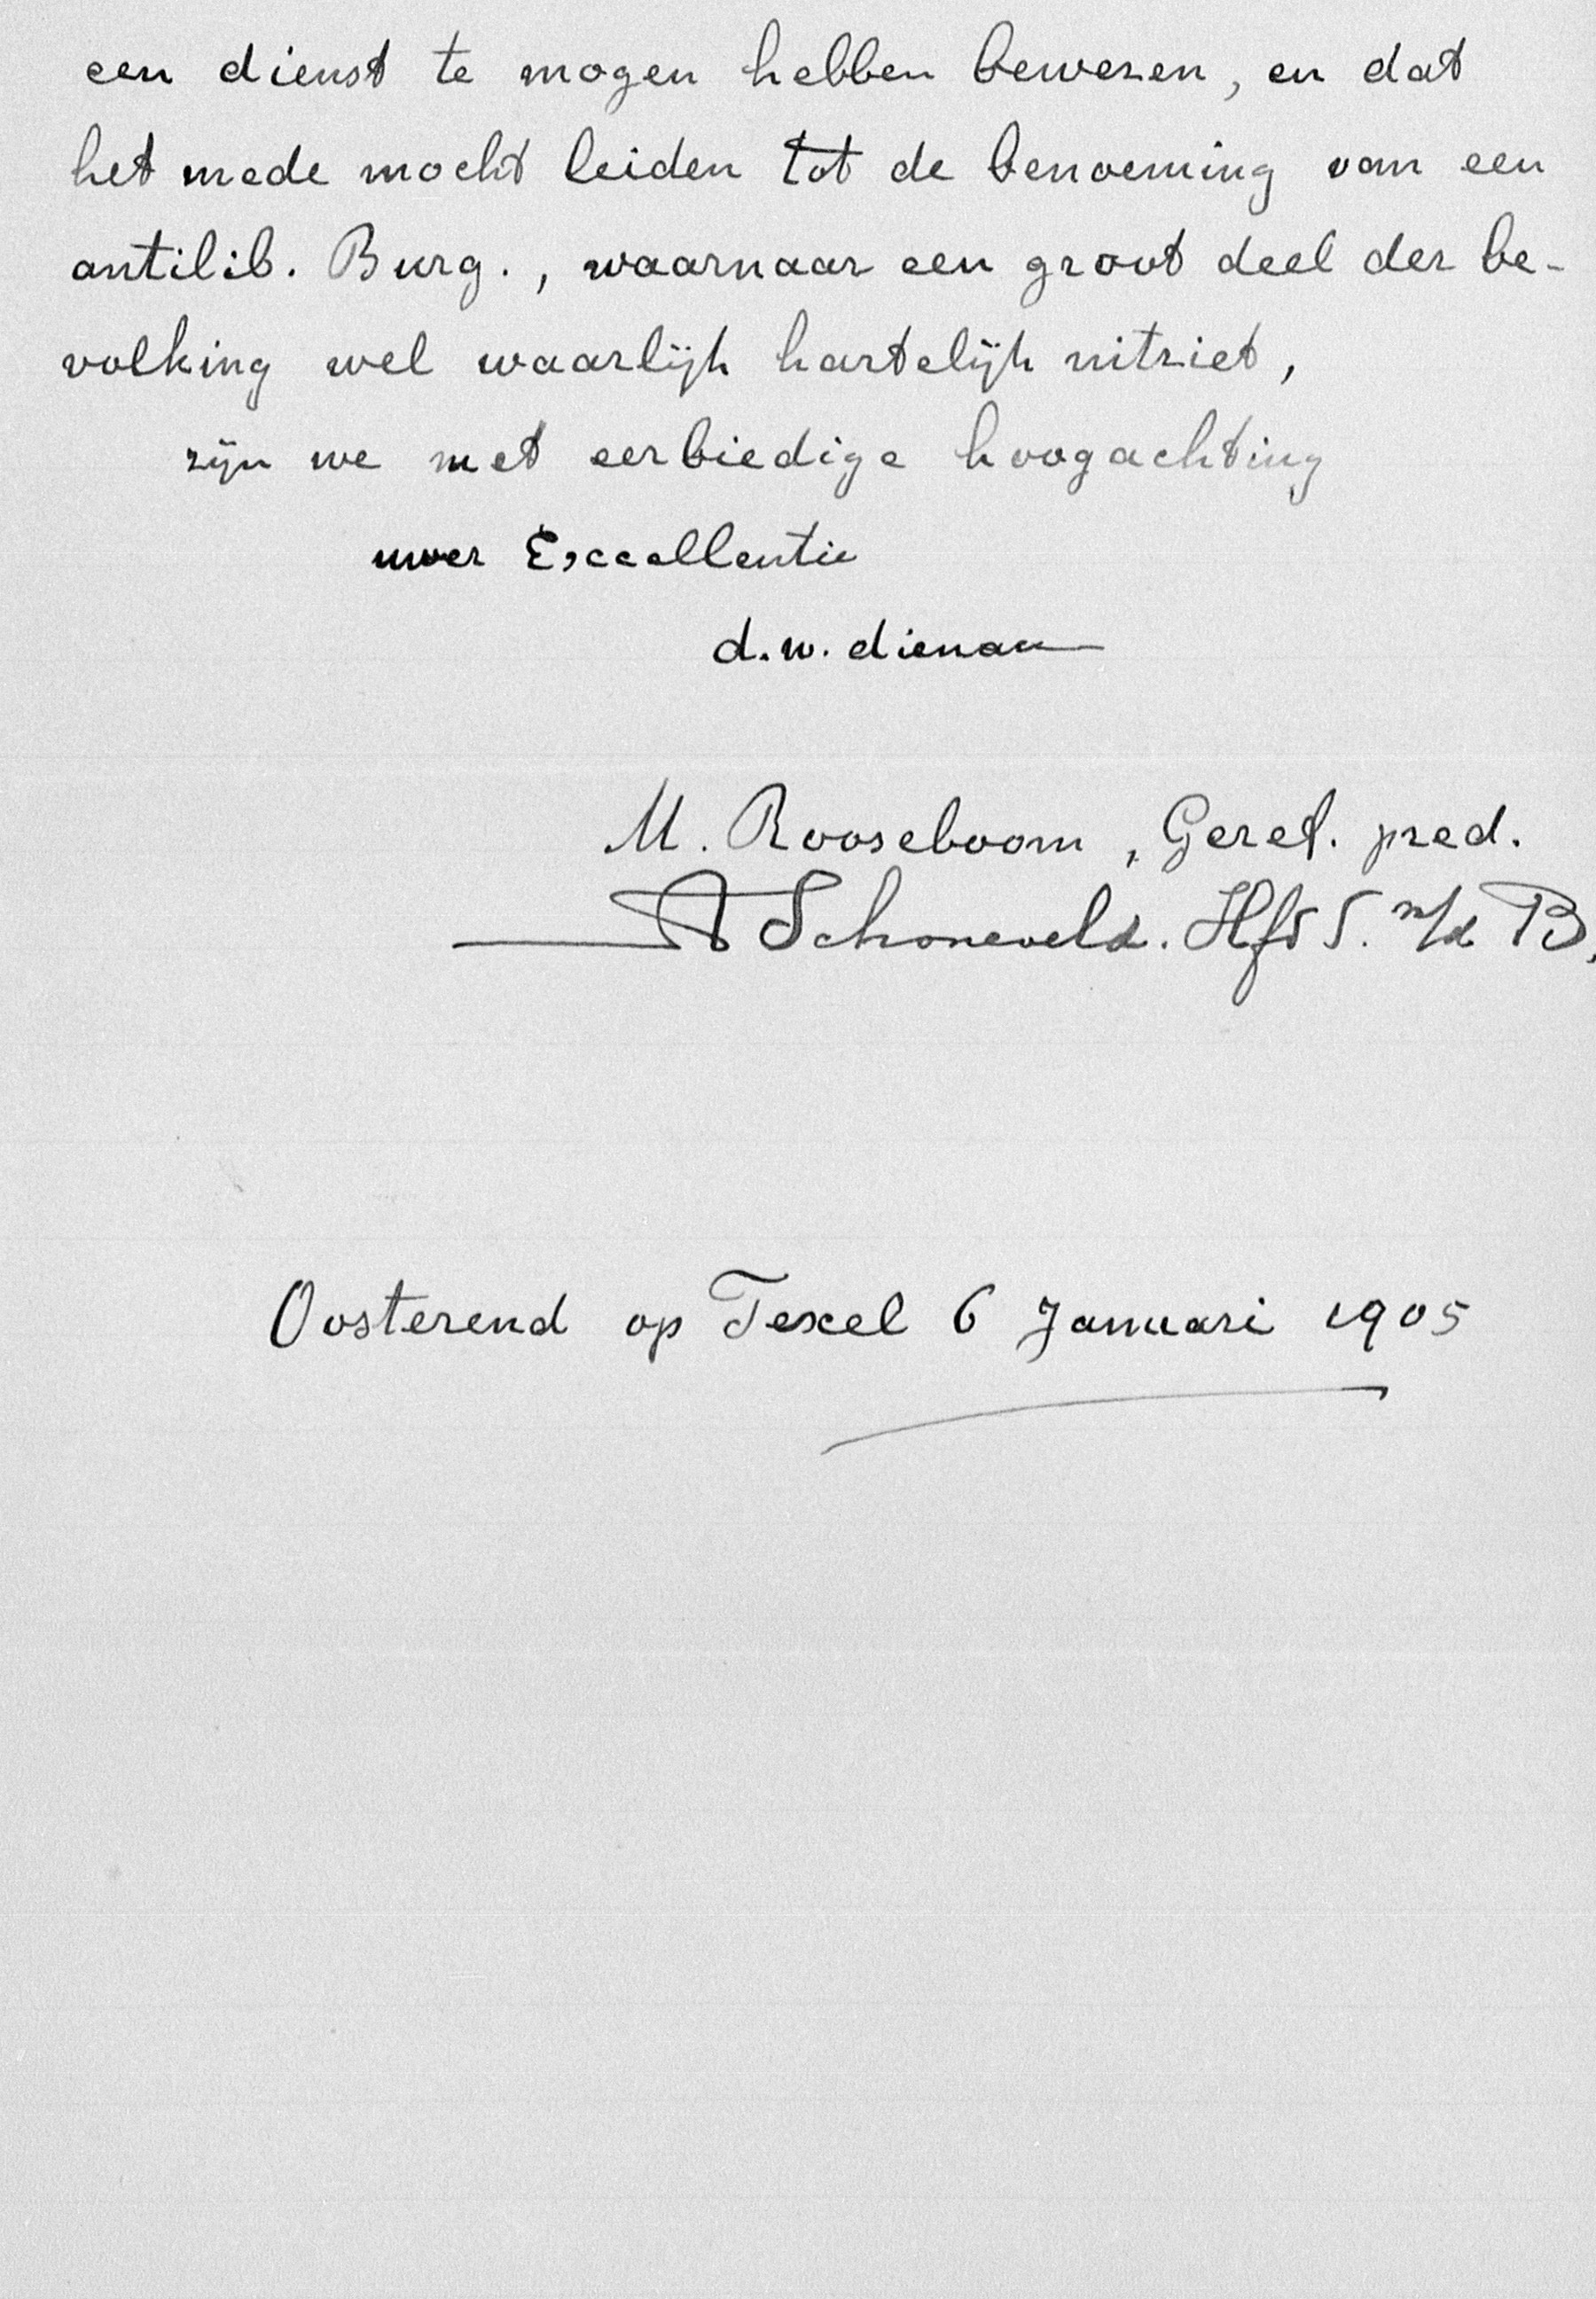 een dienst te mogen hebben bewezen, en dat
het mede mocht leiden tot de benoeming van een
antilib. Burg., waarnaar een groot deel der be-
volking wel waarlijk hartelijk uitziet,
zijn we met eerbiedige hoogachting
uwer Excellentie
d.w. dienaren
M. Rooseboom, Geref. pred.
A Schoneveld. Hfd S. m/d B.
Oosterend op Texel 6 Januari 1905